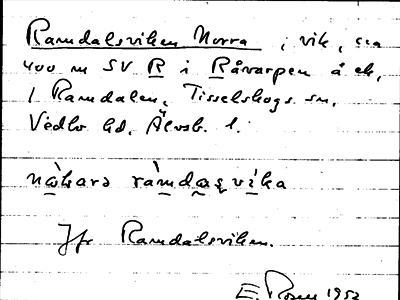 Ramdalsviken Norra, vik, ca
400 m SV R i Råvarpen å ek.
/ Ramdalen, Tisselskogs sn,
Vedbo hd, Älvsb. l.
ràmdaʂvika
Jfr Ramdalsviken.
E. Rosell 1952